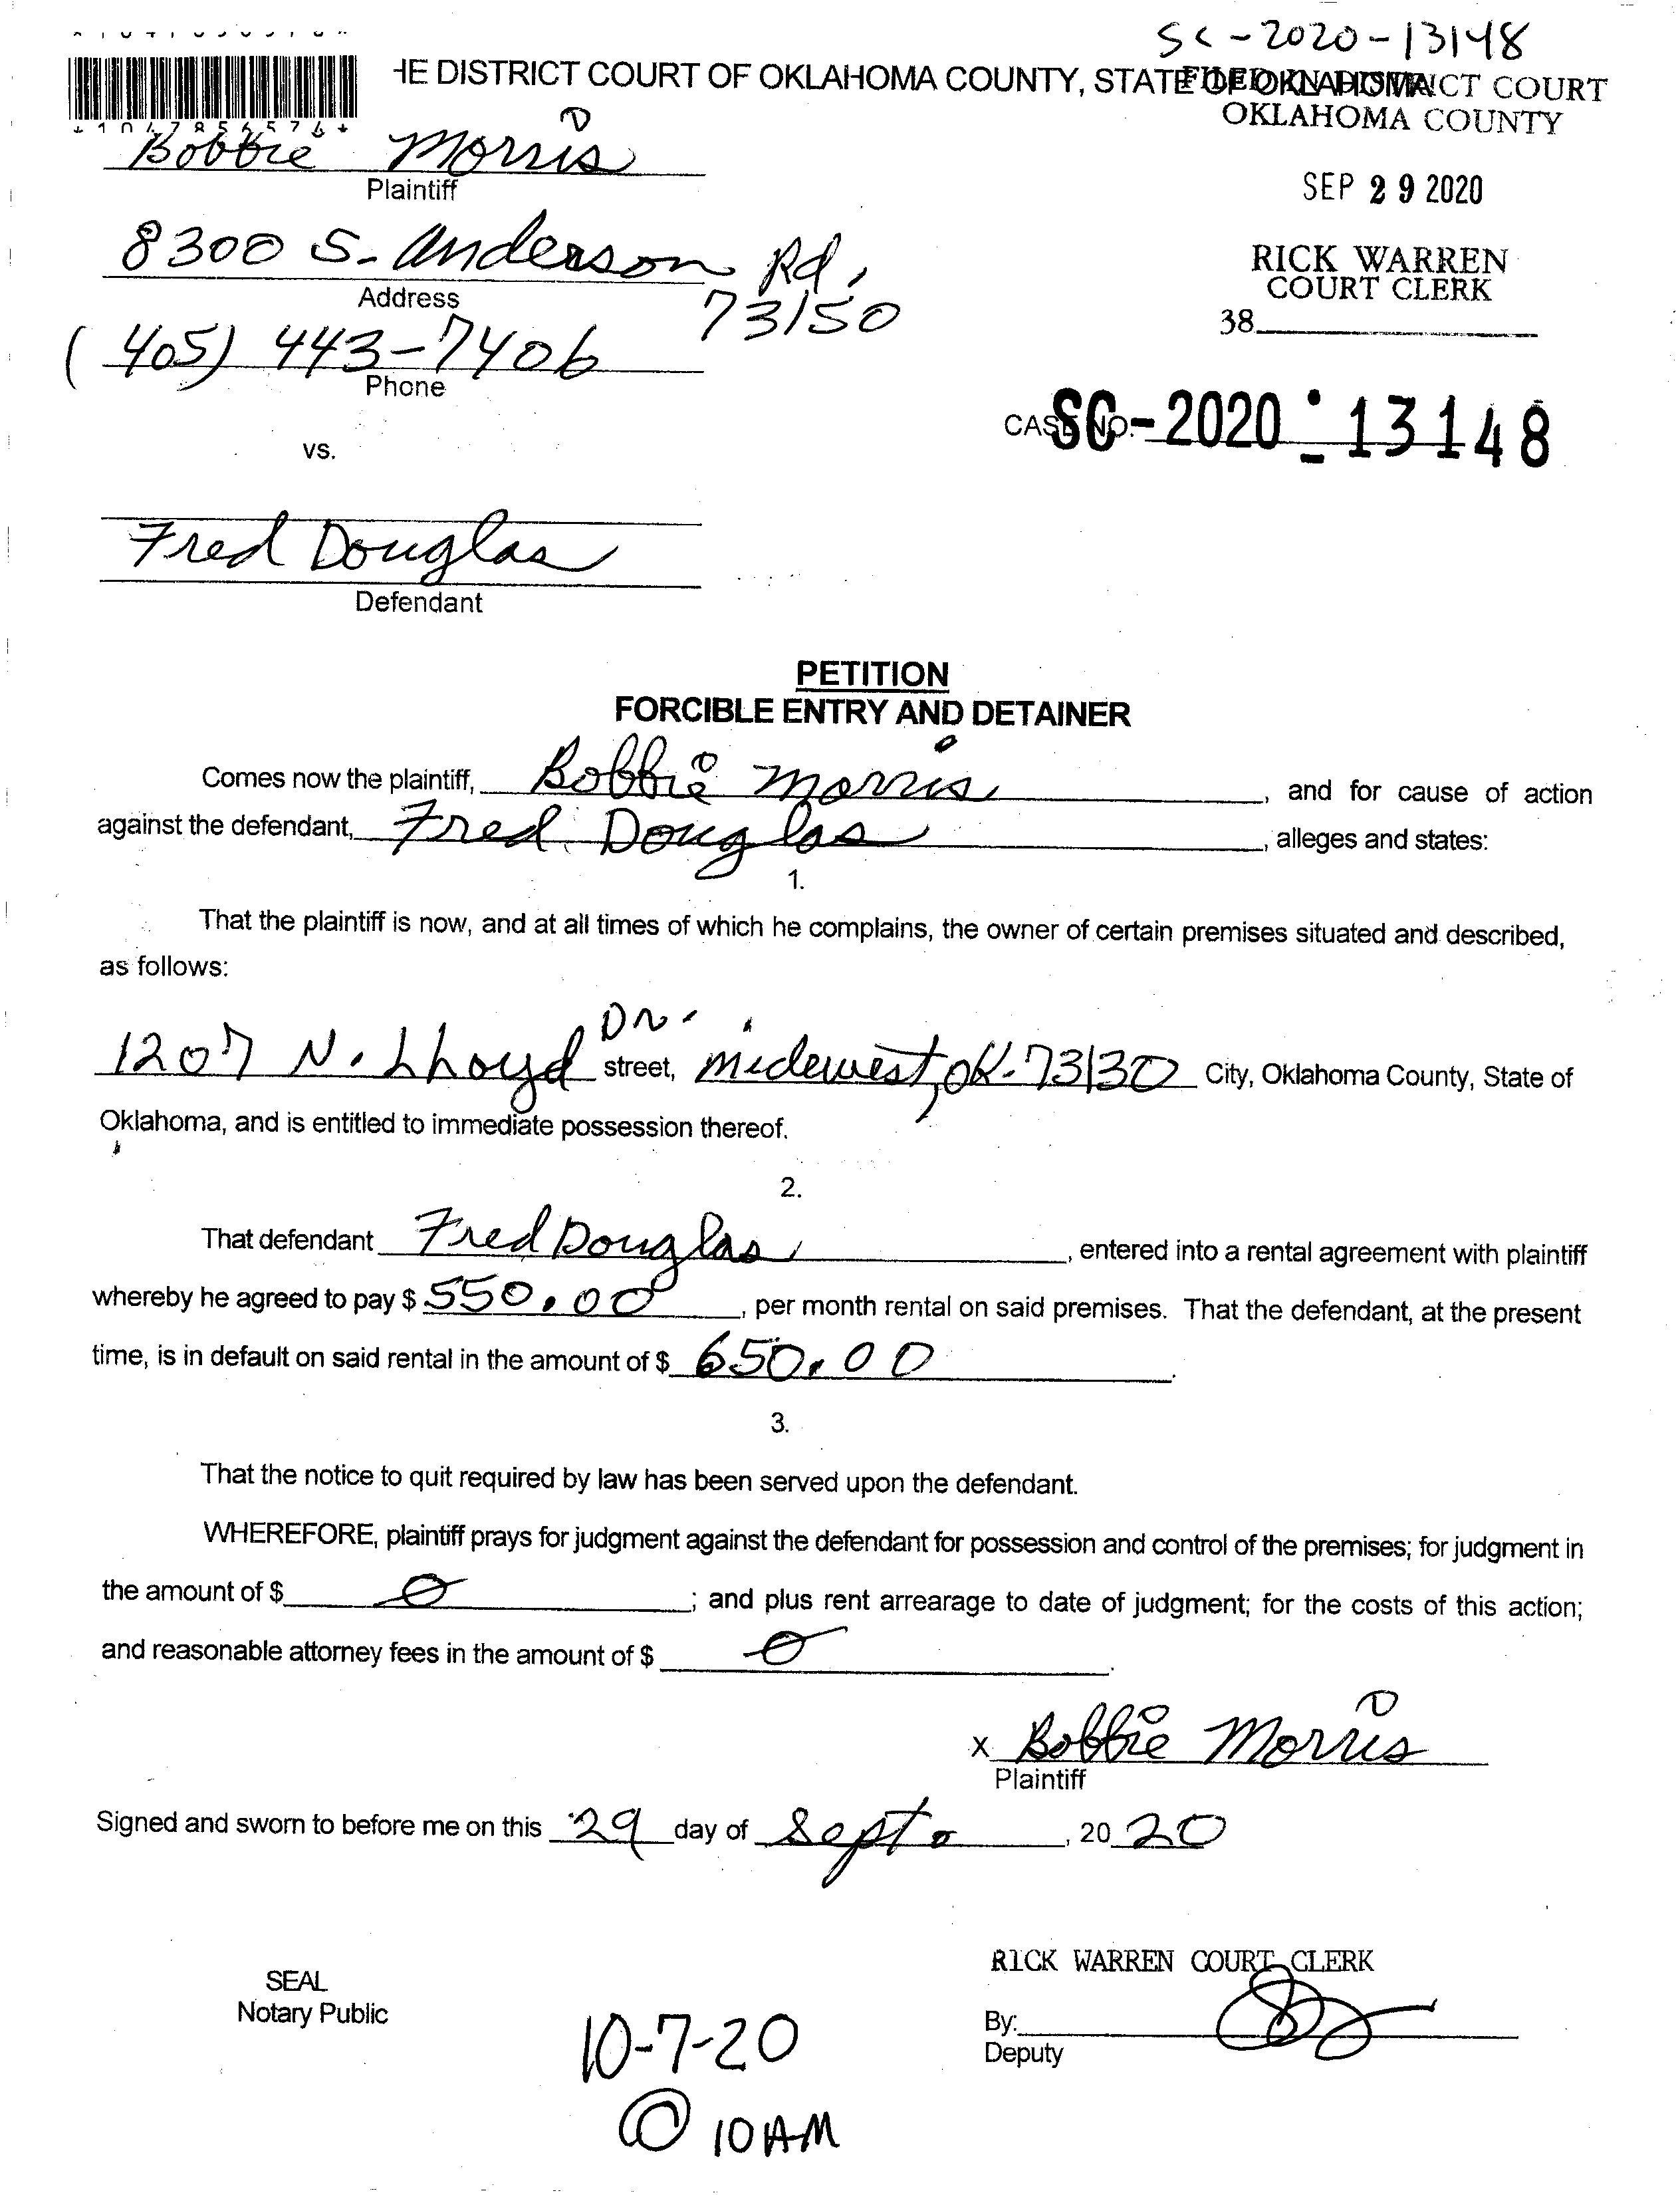 SC-2020-13148
HE DISTRICT COURT OF OKLAHOMA COUNTY, STATE OF OKLAHOMA
FILED IN DISTRICT COURT
OKLAHOMA COUNTY
Bobbie Morris
Plaintiff
SEP 29 2020
8300 S. Anderson Rd,
73150
Address
RICK WARREN
COURT CLERK
38
(405) 443-7406
Phone
CASE NO. SC-2020-13148
vs.
Fred Douglas
Defendant
PETITION
FORCIBLE ENTRY AND DETAINER
Comes now the plaintiff, Bobbie Morris, and for cause of action
against the defendant, Fred Douglas, alleges and states:
1.
That the plaintiff is now, and at all times of which he complains, the owner of certain premises situated and described,
as follows:
1207 N. Lhoyd Dr. street, midewest, OK-73130 City, Oklahoma County, State of
Oklahoma, and is entitled to immediate possession thereof.
2.
That defendant Fred Douglas, entered into a rental agreement with plaintiff
whereby he agreed to pay $ 550.00, per month rental on said premises. That the defendant, at the present
time, is in default on said rental in the amount of $ 650.00.
3.
That the notice to quit required by law has been served upon the defendant.
WHEREFORE, plaintiff prays for judgment against the defendant for possession and control of the premises; for judgment in
the amount of $ 0; and plus rent arrearage to date of judgment; for the costs of this action;
and reasonable attorney fees in the amount of $ 0.
x Bobbie Morris
Plaintiff
Signed and sworn to before me on this 29 day of Sept., 2020
RICK WARREN COURT CLERK
SEAL
Notary Public
By:
Deputy
10-7-20
@ 10AM